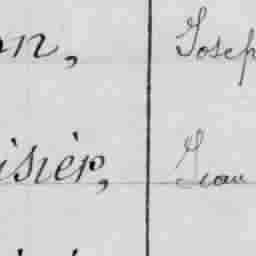 on, Josep
isièr, Jean